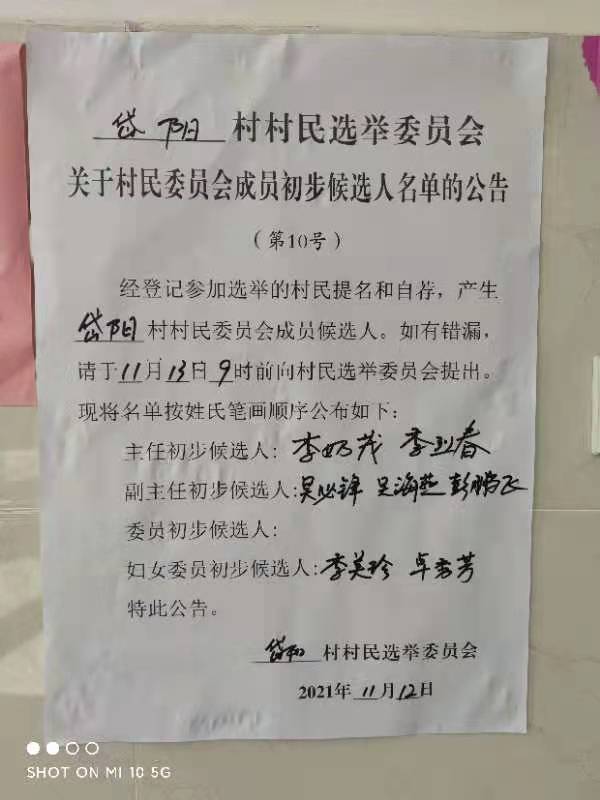 岱阳村村民选举委员会
关于村民委员会成员初步候选人名单的公告
（第10号）
经登记参加选举的村民提名和自荐，产生
岱阳村村民委员会成员候选人。如有错漏，
请于11月13日9时前向村民选举委员会提出。
现将名单按姓氏笔画顺序公布如下：
主任初步候选人：李 茂 季 春
副主任初步候选人:吴必锋 吴海燕 彭鹏飞
委员初步候选人：
妇女委员初步候选人:李美珍 卓秀芳
特此公告。
岱阳村村民选举委员会
2021年11月12日
SHOT ON MI 10 5G